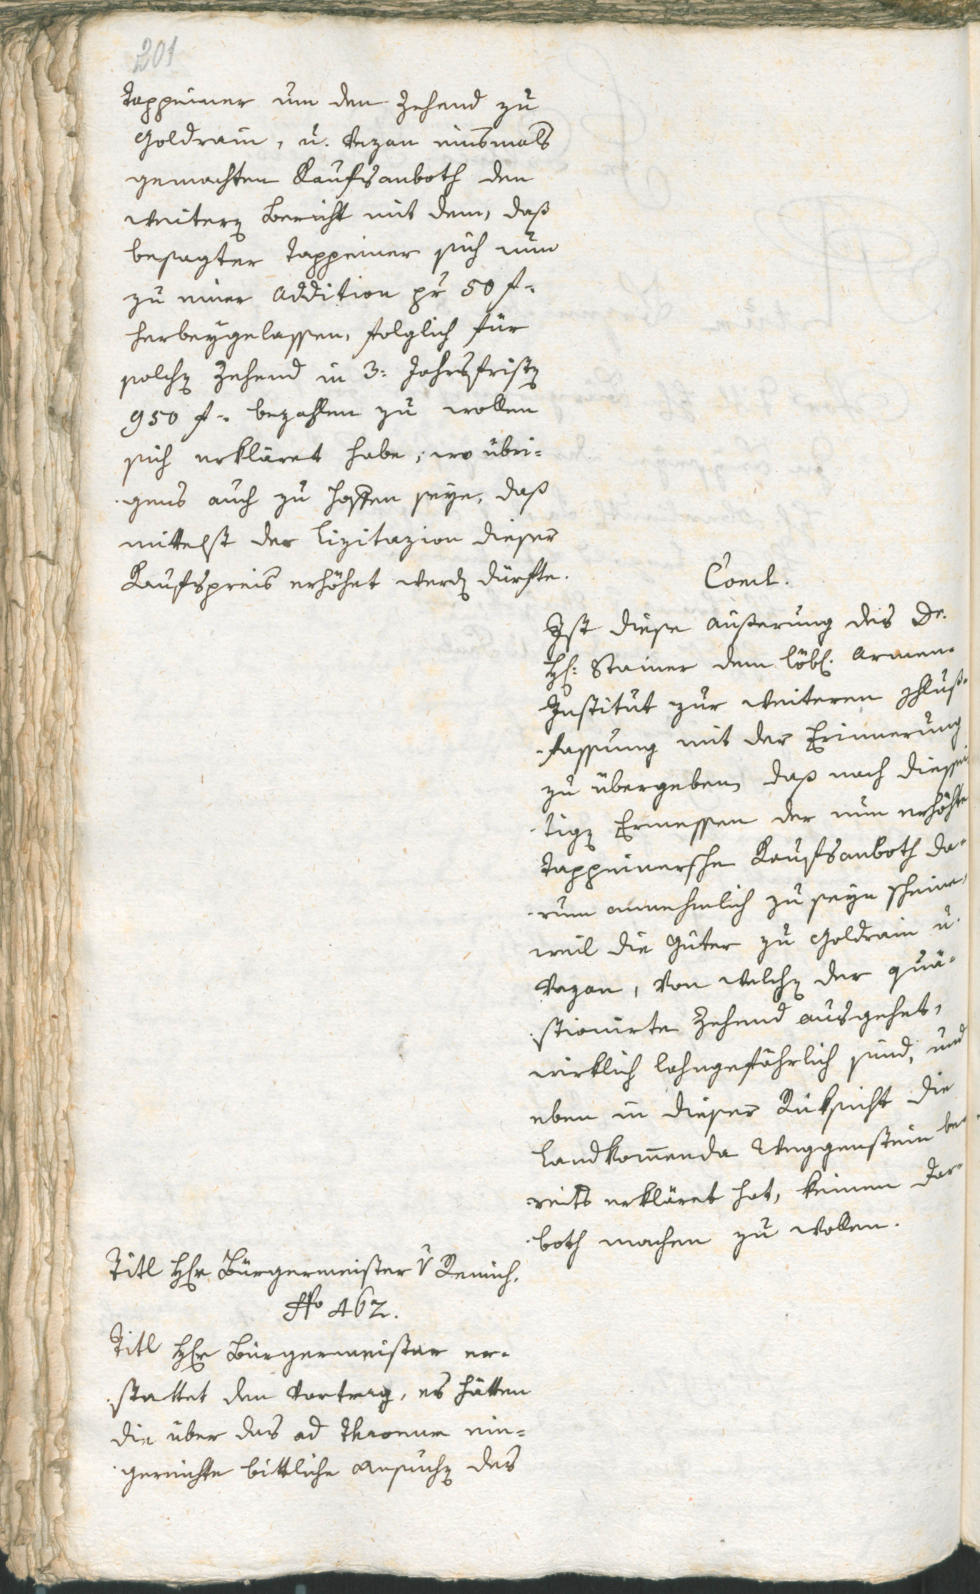 201
Tappeiner um den Zehend zu
Goldrain, u. Vezan einsmals
gemachten Kaufsanboth den
weiterē Bericht mit dem, daß
besagter Tappeiner sich nun
zu einer Addition pr 50 f.
herbeygelassen, folglich für
solchē Zehend in 3: Jahrsfristē
950 f. bezahlen zu wollen
sich erkläret habe, wo übri-
gens auch zu hoffen seye, daß
mittelst der Lizitazion dieser
Kaufspreis erhöhet werdē dürfte.
Concl.
Ist diese äußerung des Dr.
H: Stainer dem löbl. Armen-
Institut zur weiteren Schluß-
fassung mit der Erinnerung
zu übergeben, daß nach diessei
tigē Ermessen der nun erhöhte
Tappeinersche Kaufsanboth da-
rum annehmlich zu seyn scheine,
weil die Güter zu Goldrain u.
Vezan, von welchē der quä-
stionirte Zehend ausgehet,
wirklich lahngefährlich sind, und
eben in dieser Rüksicht die
Landkom̅enda Weggenstein be-
reits erkläret hat, keinen Dar-
both machen zu wollen.
Titl Hr Bürgermeister v Remich.
No 462.
Titl Hr Bürgermeister er-
stattet den Vortrag, es hätten
die über das ad Thronum ein-
gereichte bittliche Ansuchē des